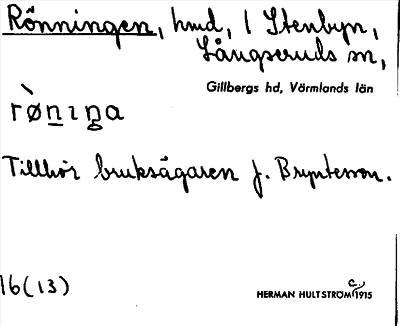 Rönningen, hmd, 1 Stenbyn,
Långseruds sn,
Gillbergs hd, Värmlands län
rø̀nıŋa
Tillhör bruksägaren J. Bryntesson.
16(13)
HERMAN HULTSTRÖM 1915